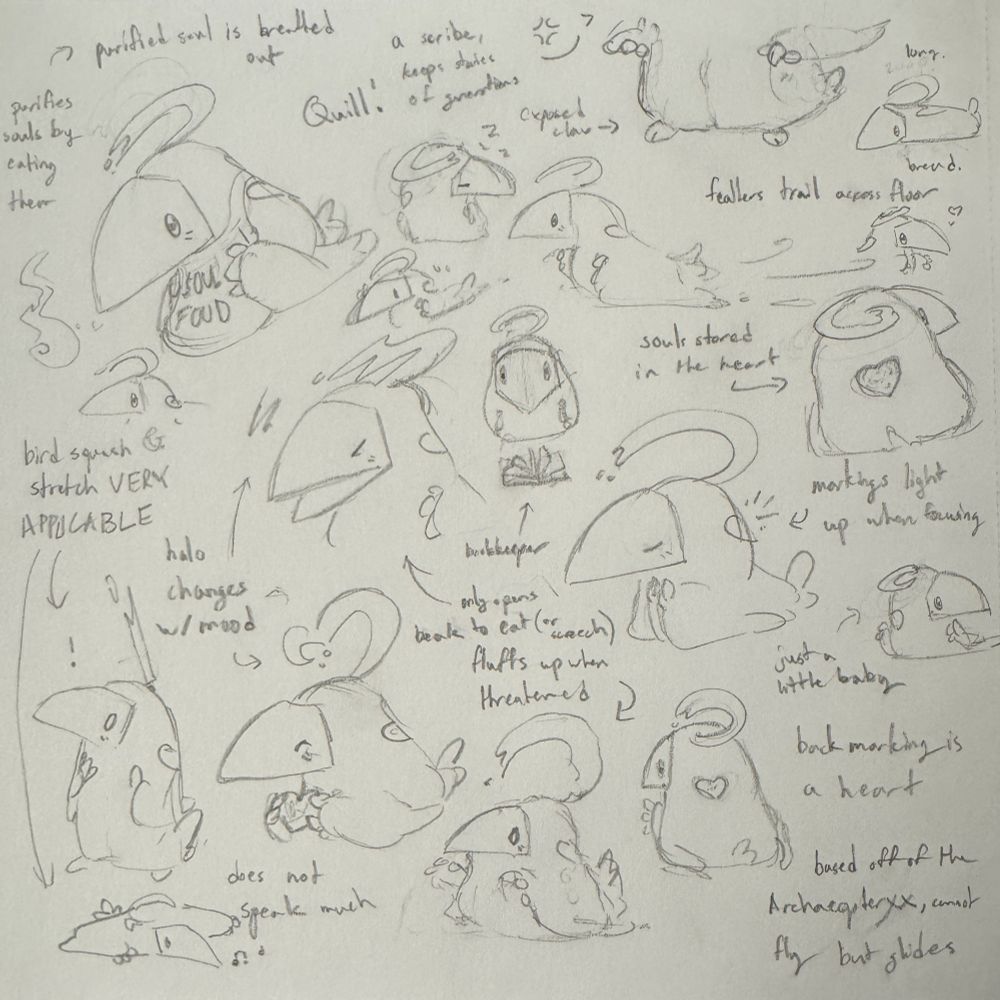 purified soul is breathed
out
a scribe,
keeps stories
of generations
Quill!
long.
purifies
souls by
eating
them
z
z z
exposed
claw →
bread.
feathers trail across floor
SOUL
FOOD
souls stored
in the heart
bird squash &
stretch VERY
APPLICABLE
markings light
up when focusing
halo
changes
w/ mood
bookkeeper
only opens
beak to eat (or
screech)
fluffs up when
threatened
just a
little baby
!
?
back marking is
a heart
does not
speak much
based off of the
Archaeopteryx, cannot
fly but glides